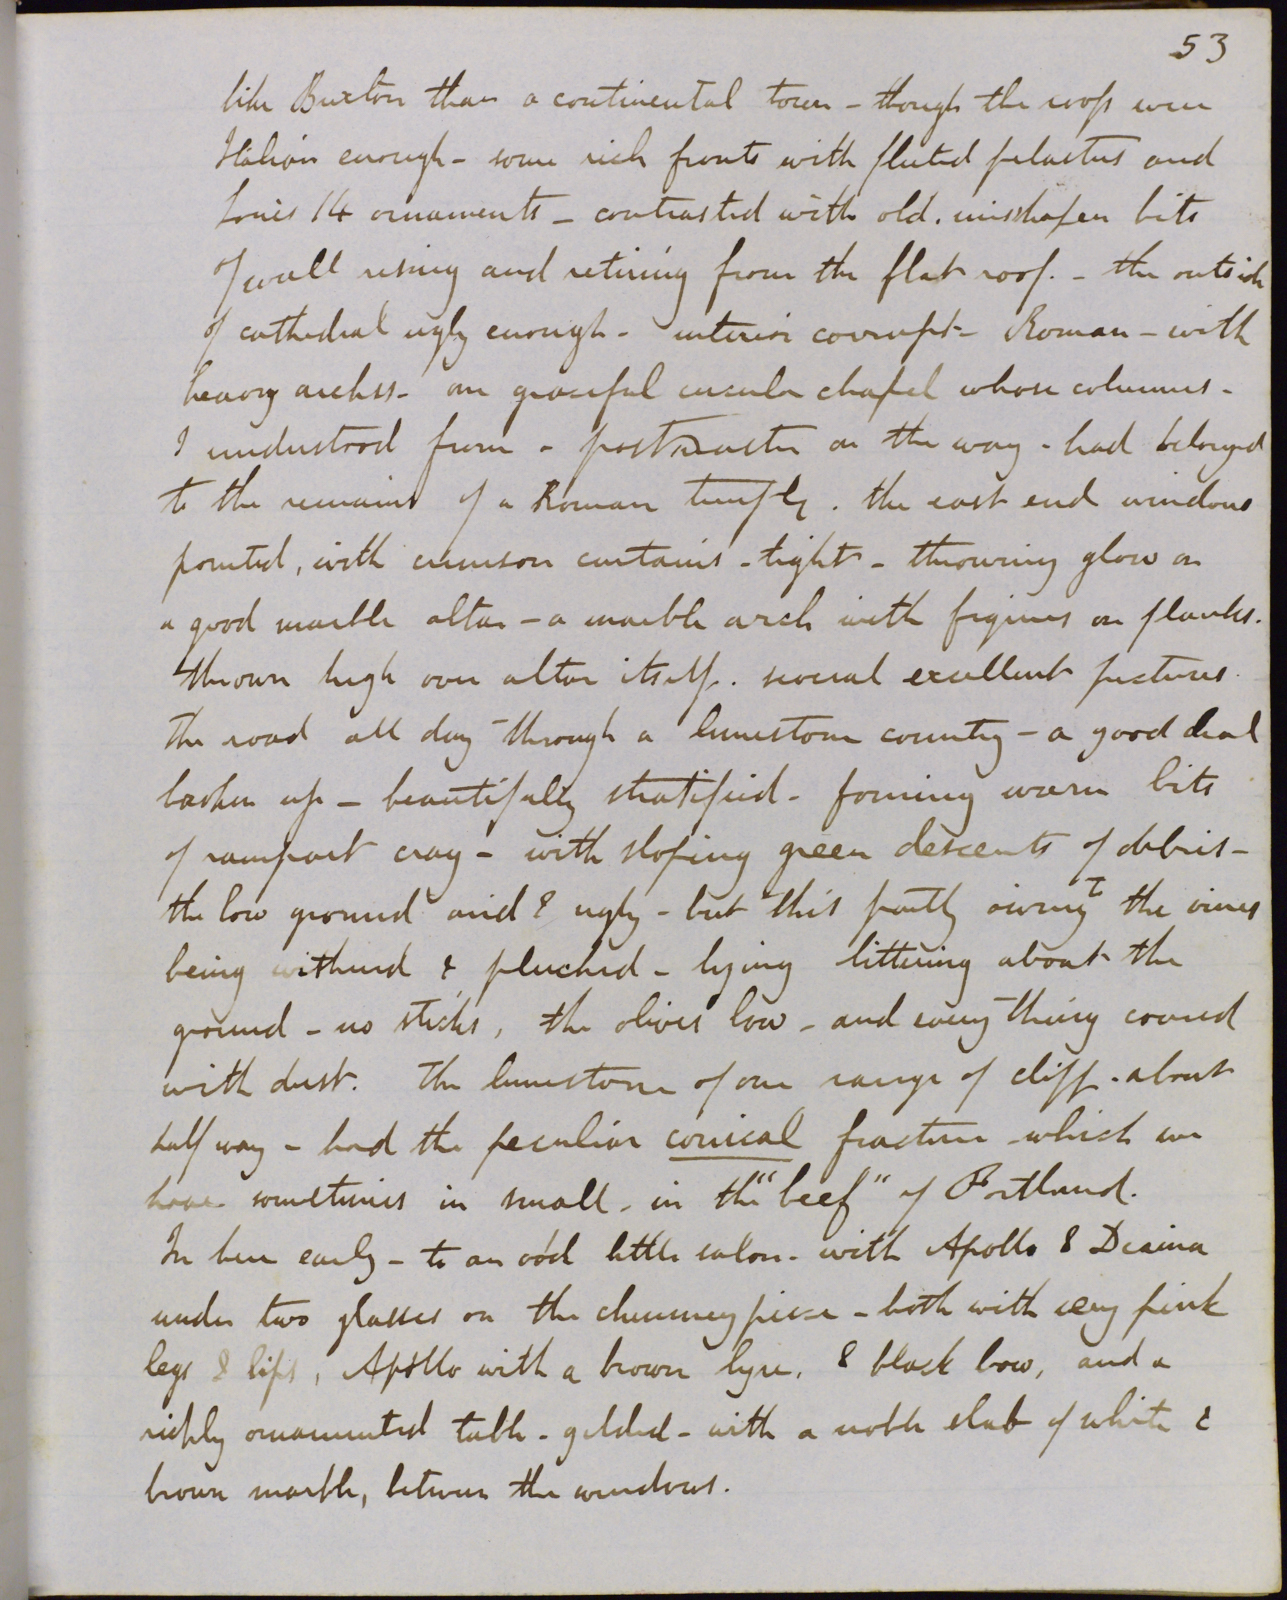 53
like Buxton than a continental town - though the roofs were
Italian enough - some rich fronts with fluted pilasters and
Louis 14 ornaments - contrasted with old, misshapen bits
of wall rising and retiring from the flat roof. - the outside
of cathedral ugly enough - interior corrupt - Roman - with
heavy arches - one graceful circular chapel whose columns -
I understood from a postmaster on the way - had belonged
to the remains of a Roman temple. the east end windows
pointed, with crimson curtains - tight - throwing glow on
a good marble altar - a marble arch with figures on flanks.
thrown high over altar itself. several excellent pictures.
The road all day through a limestone country - a good deal
broken up - beautifully stratified - forming warm bits
of rampart crag - with sloping green descents of debris -
the low ground arid & ugly - but this partly owing to the vines
being withered & plucked - lying littering about the
ground - no sticks, the olives low - and every thing covered
with dust. The limestone of one range of cliff - about
half way - had the peculiar conical fracture - which we
have sometimes in small - in the "beef" of Portland.
In here early - to an odd little salon - with Apollo & Diana
under two glasses on the chimneypiece - both with very pink
legs & lips, Apollo with a brown lyre, & black bow, and a
richly ornamented table - gilded - with a noble slab of white &
brown marble, between the windows.